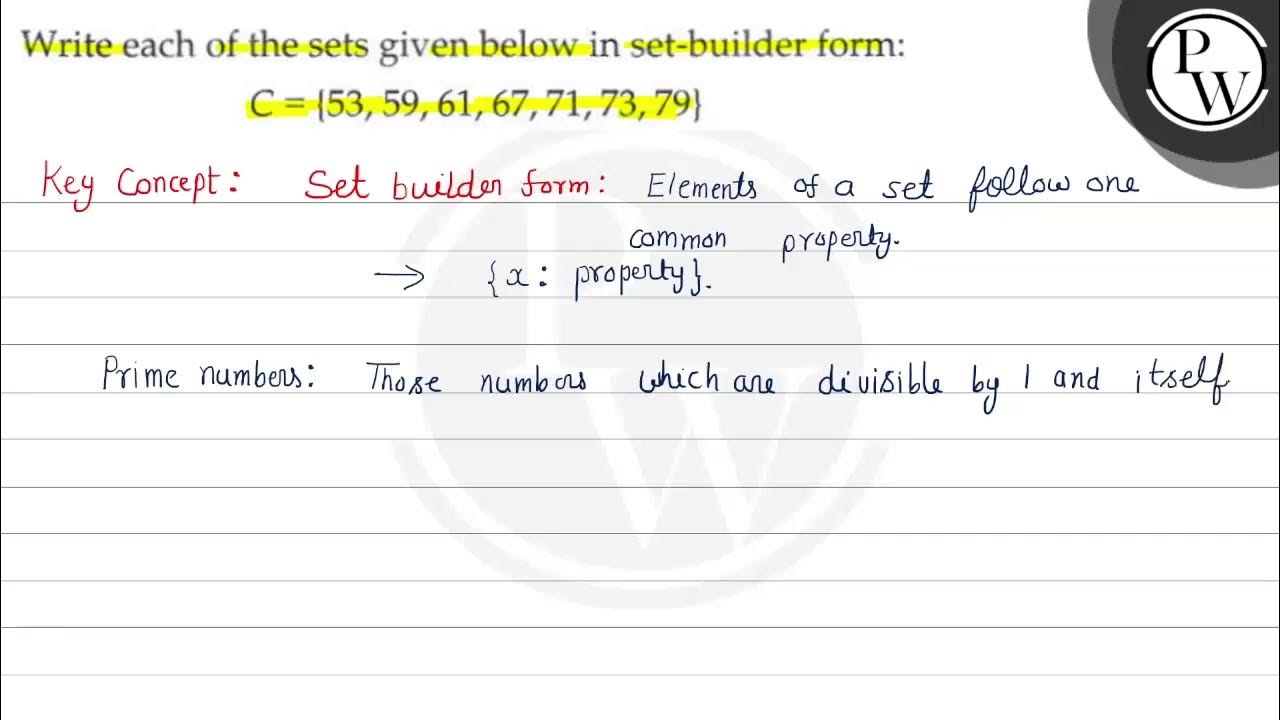 Write each of the sets given below in set-builder form:
C = {53, 59, 61, 67, 71, 73, 79}
PW
Key Concept: Set builder form: Elements of a set follow one
common property.
→ {x: property}.
Prime numbers: Those numbers which are divisible by 1 and itself